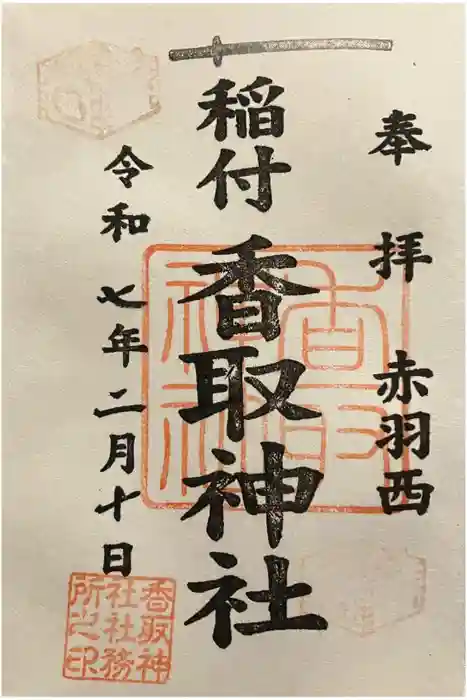 奉拝 赤羽西
稲付
香取神社
令和七年二月十日
香取神社
香取神
社社務
所之印